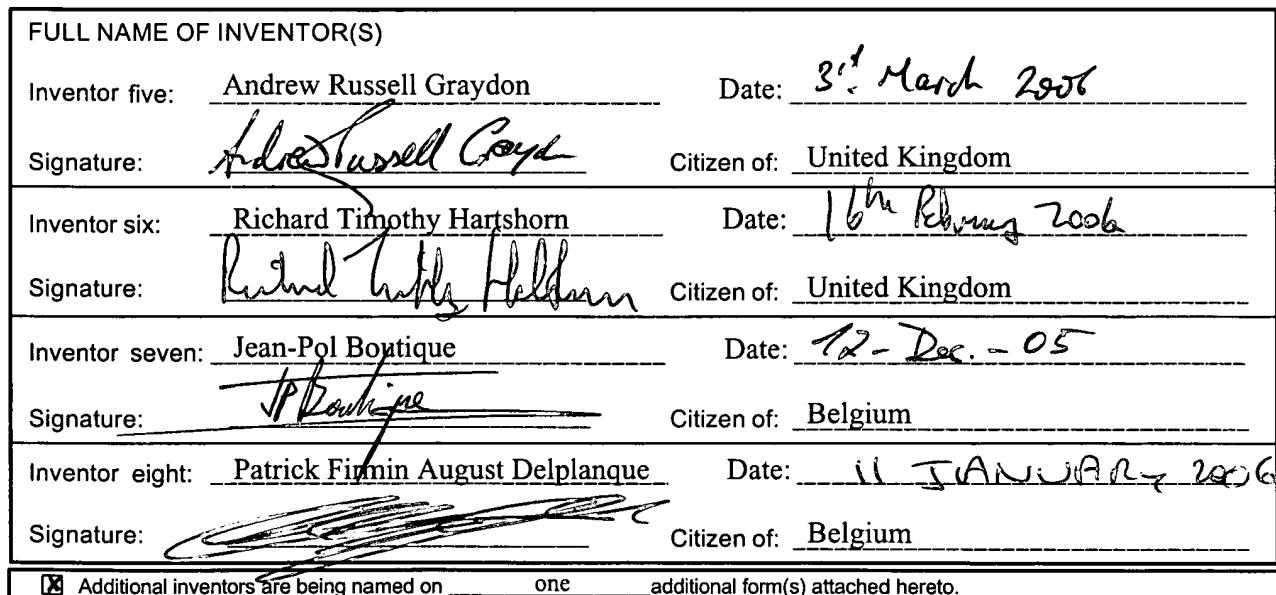 FULL NAME OF INVENTOR(S)
Inventor five: Andrew Russell Graydon Date: 3rd March 2006
Signature: Andrew Russell Graydon Citizen of: United Kingdom
Inventor six: Richard Timothy Hartshorn Date: 16th February 2006
Signature: Richard Timothy Hartshorn Citizen of: United Kingdom
Inventor seven: Jean-Pol Boutique Date: 12-Dec.-05
Signature: JPBoutique Citizen of: Belgium
Inventor eight: Patrick Firmin August Delplanque Date: 11 JANUARY 2006
Signature: Citizen of: Belgium
Additional inventors are being named on one additional form(s) attached hereto.